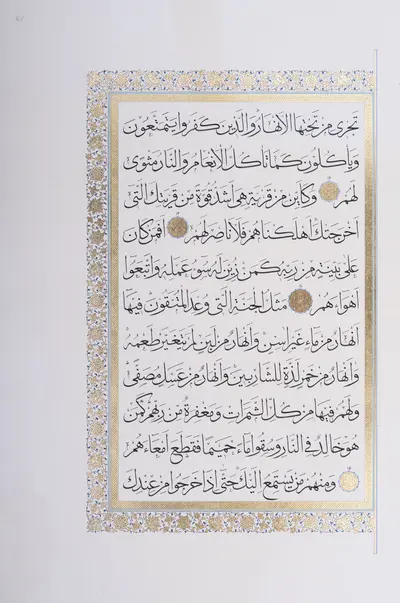 تجرى من تحتها الانهار والذين كفروا يتمتعون
ويأكلون كما تأكل الانعام والنار مثوى
لهم وكاين من قرية هى اشد قوة من قريتك التى
اخرجتك اهلكناهم فلا ناصر لهم افمن كان
على بينة من ربه كمن زين له سوء عمله واتبعوا
اهواءهم مثل الجنة التى وعد المتقون فيها
انهار من ماء غير اسن وانهار من لبن لم يتغير طعمه
وانهار من خمر لذة للشاربين وانهار من عسل مصفى
ولهم فيها من كل الثمرات ومغفرة من ربهم كمن
هو خالد فى النار وسقوا ماء حميما فقطع امعاءهم
ومنهم من يستمع اليك حتى اذا خرجوا من عندك